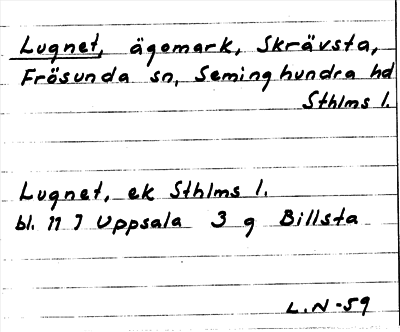 Lugnet, ägomark, Skrävsta,
Frösunda sn, Seminghundra hd
Sthlms l.
Lugnet, ek Sthlms l.
bl. 11 I Uppsala 3 g Billsta
L.N-59